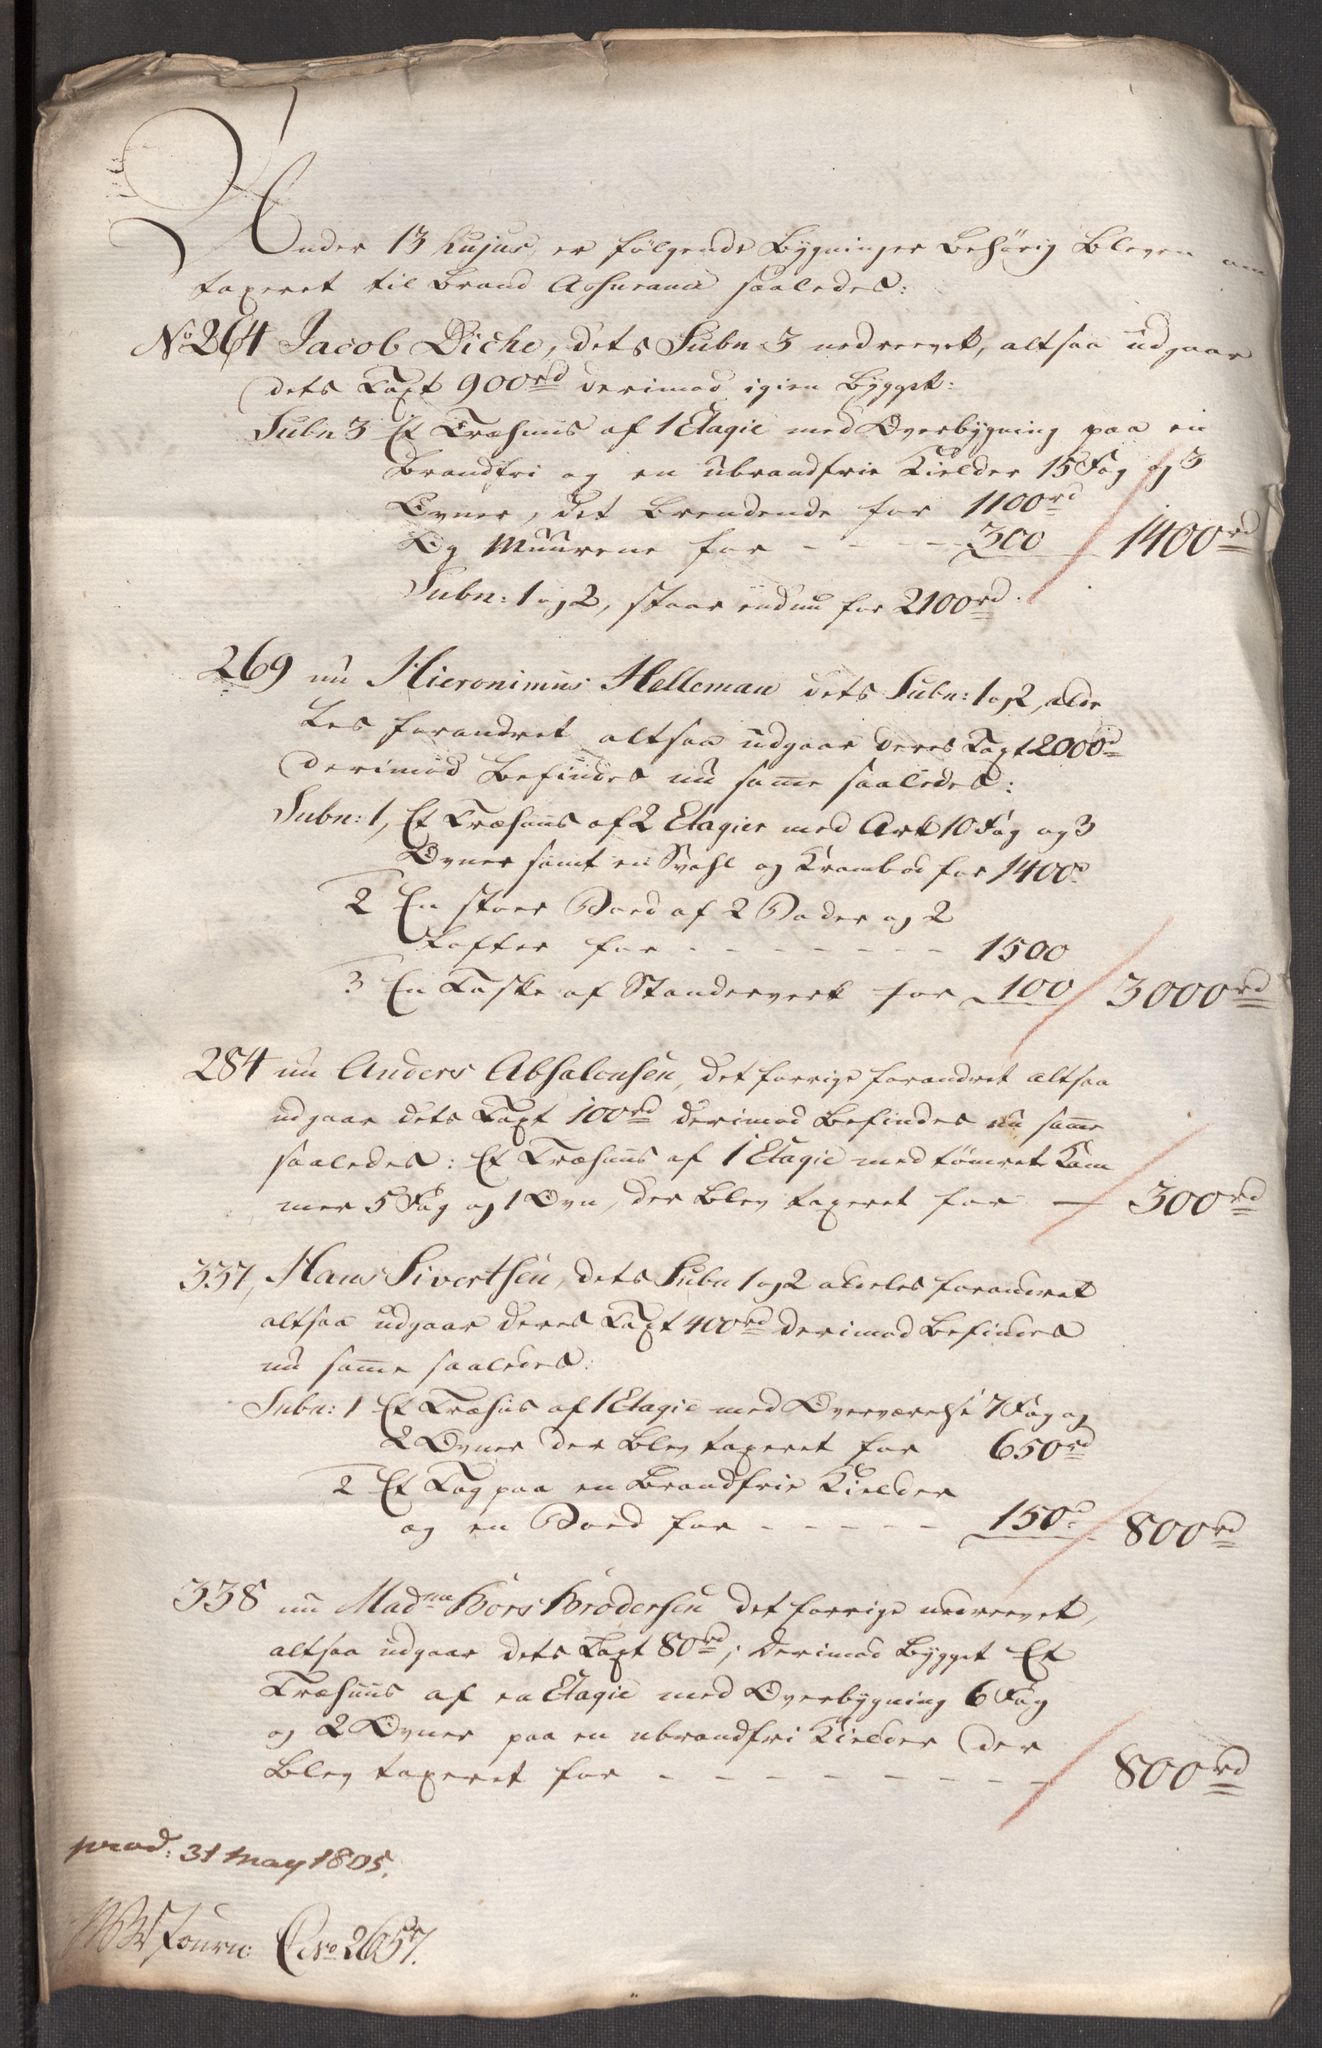 Under 13 hujus er følgende Bygninger Behørig Bleven om
taxeret til Brand Assurance saaledes:
No 264 Jacob Diche, dets Subn 3 nedrevet, altsaa udgaar
dets Taxt 900rd derimod igien Bygget:
Subn 3 Et Træhuus af 1 Etagie med Overbygning paa en
Brandfri og en ubrandfrie Kielder 15 Fag og 3
Ovner, det Brendende for 1100rd
Og Muurene for - - - - 300 1400rd
Subn: 1 og 2, staar endnu for 2100rd.
269 nu Hieronimus Helleman dets Subn: 1 og 2, alde
les forandret altsaa udgaar deres Taxt 2000d
derimod Befindes nu samme saaledes:
Subn: 1, Et Træhuus af 2 Etagier med Ark 10 Fag og 3
Ovner samt en Svahl og Krambod for 1400d
2 En stoer Boed af 2 Boder og 2
Lofter for - - - - - - - 1500
3 En Taske af Standerverk for 100 3000rd
284 nu Anders Absalonsen, det forrige forandret altsaa
udgaar dets Taxt 100rd derimod Befindes nu samme
saaledes: Et Træhuus af 1 Etagie med tømret Kam
mer 5 Fag og 1 Ovn, der Blev taxeret for — 300rd
337, Hans Sivertsen, dets Subn 1 og 2 aldeles forandret
altsaa udgaar deres Taxt 400rd derimod Befindes
nu samme saaledes:
Subn: 1 Et Træhus af 1 Etagie med Overværelse 7 Fag og
2 Ovner der Blev taxeret for 650rd
2 Et Tag paa en Brandfrie Kielder
og en Boed for - - - - - 150d 800rd
338 nu Madme Børs Brodersen det forrige nedrevet,
altsaa udgaar dets Taxt 80rd; derimod Bygget Et
Træhuus af en Etagie med Overbygning 6 Fag
og 2 Ovner paa en ubrandfri Kielder der
Blev taxeret for - - - - - - - - - 800rd
prod: 31 May 1805.
Journ: C No 2657.